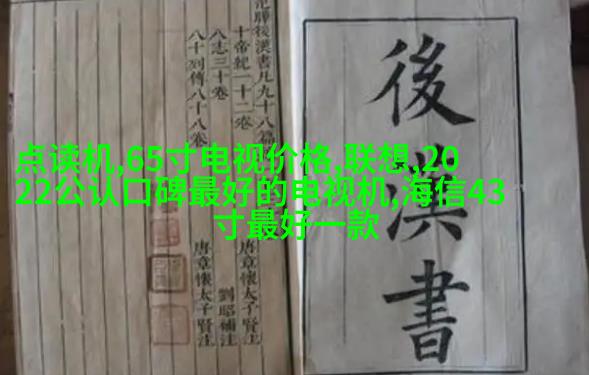 点读机,65寸电视价格,联想,20
22公认口碑最好的电视机,海信43
寸最好一款
後漢書
後漢書凡九十八篇
十帝紀一十二卷 唐章懷太子賢注
八志三十卷 劉昭補注
八十列傳八十八卷 唐章懷太子賢注